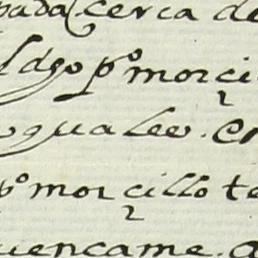 pada cerca de
ldgo pº morci
quales. en
pº morcillo te
uencame. a